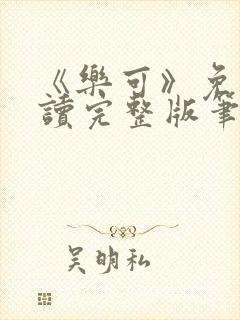 《樂可》免
讀完整版筆
吳明私